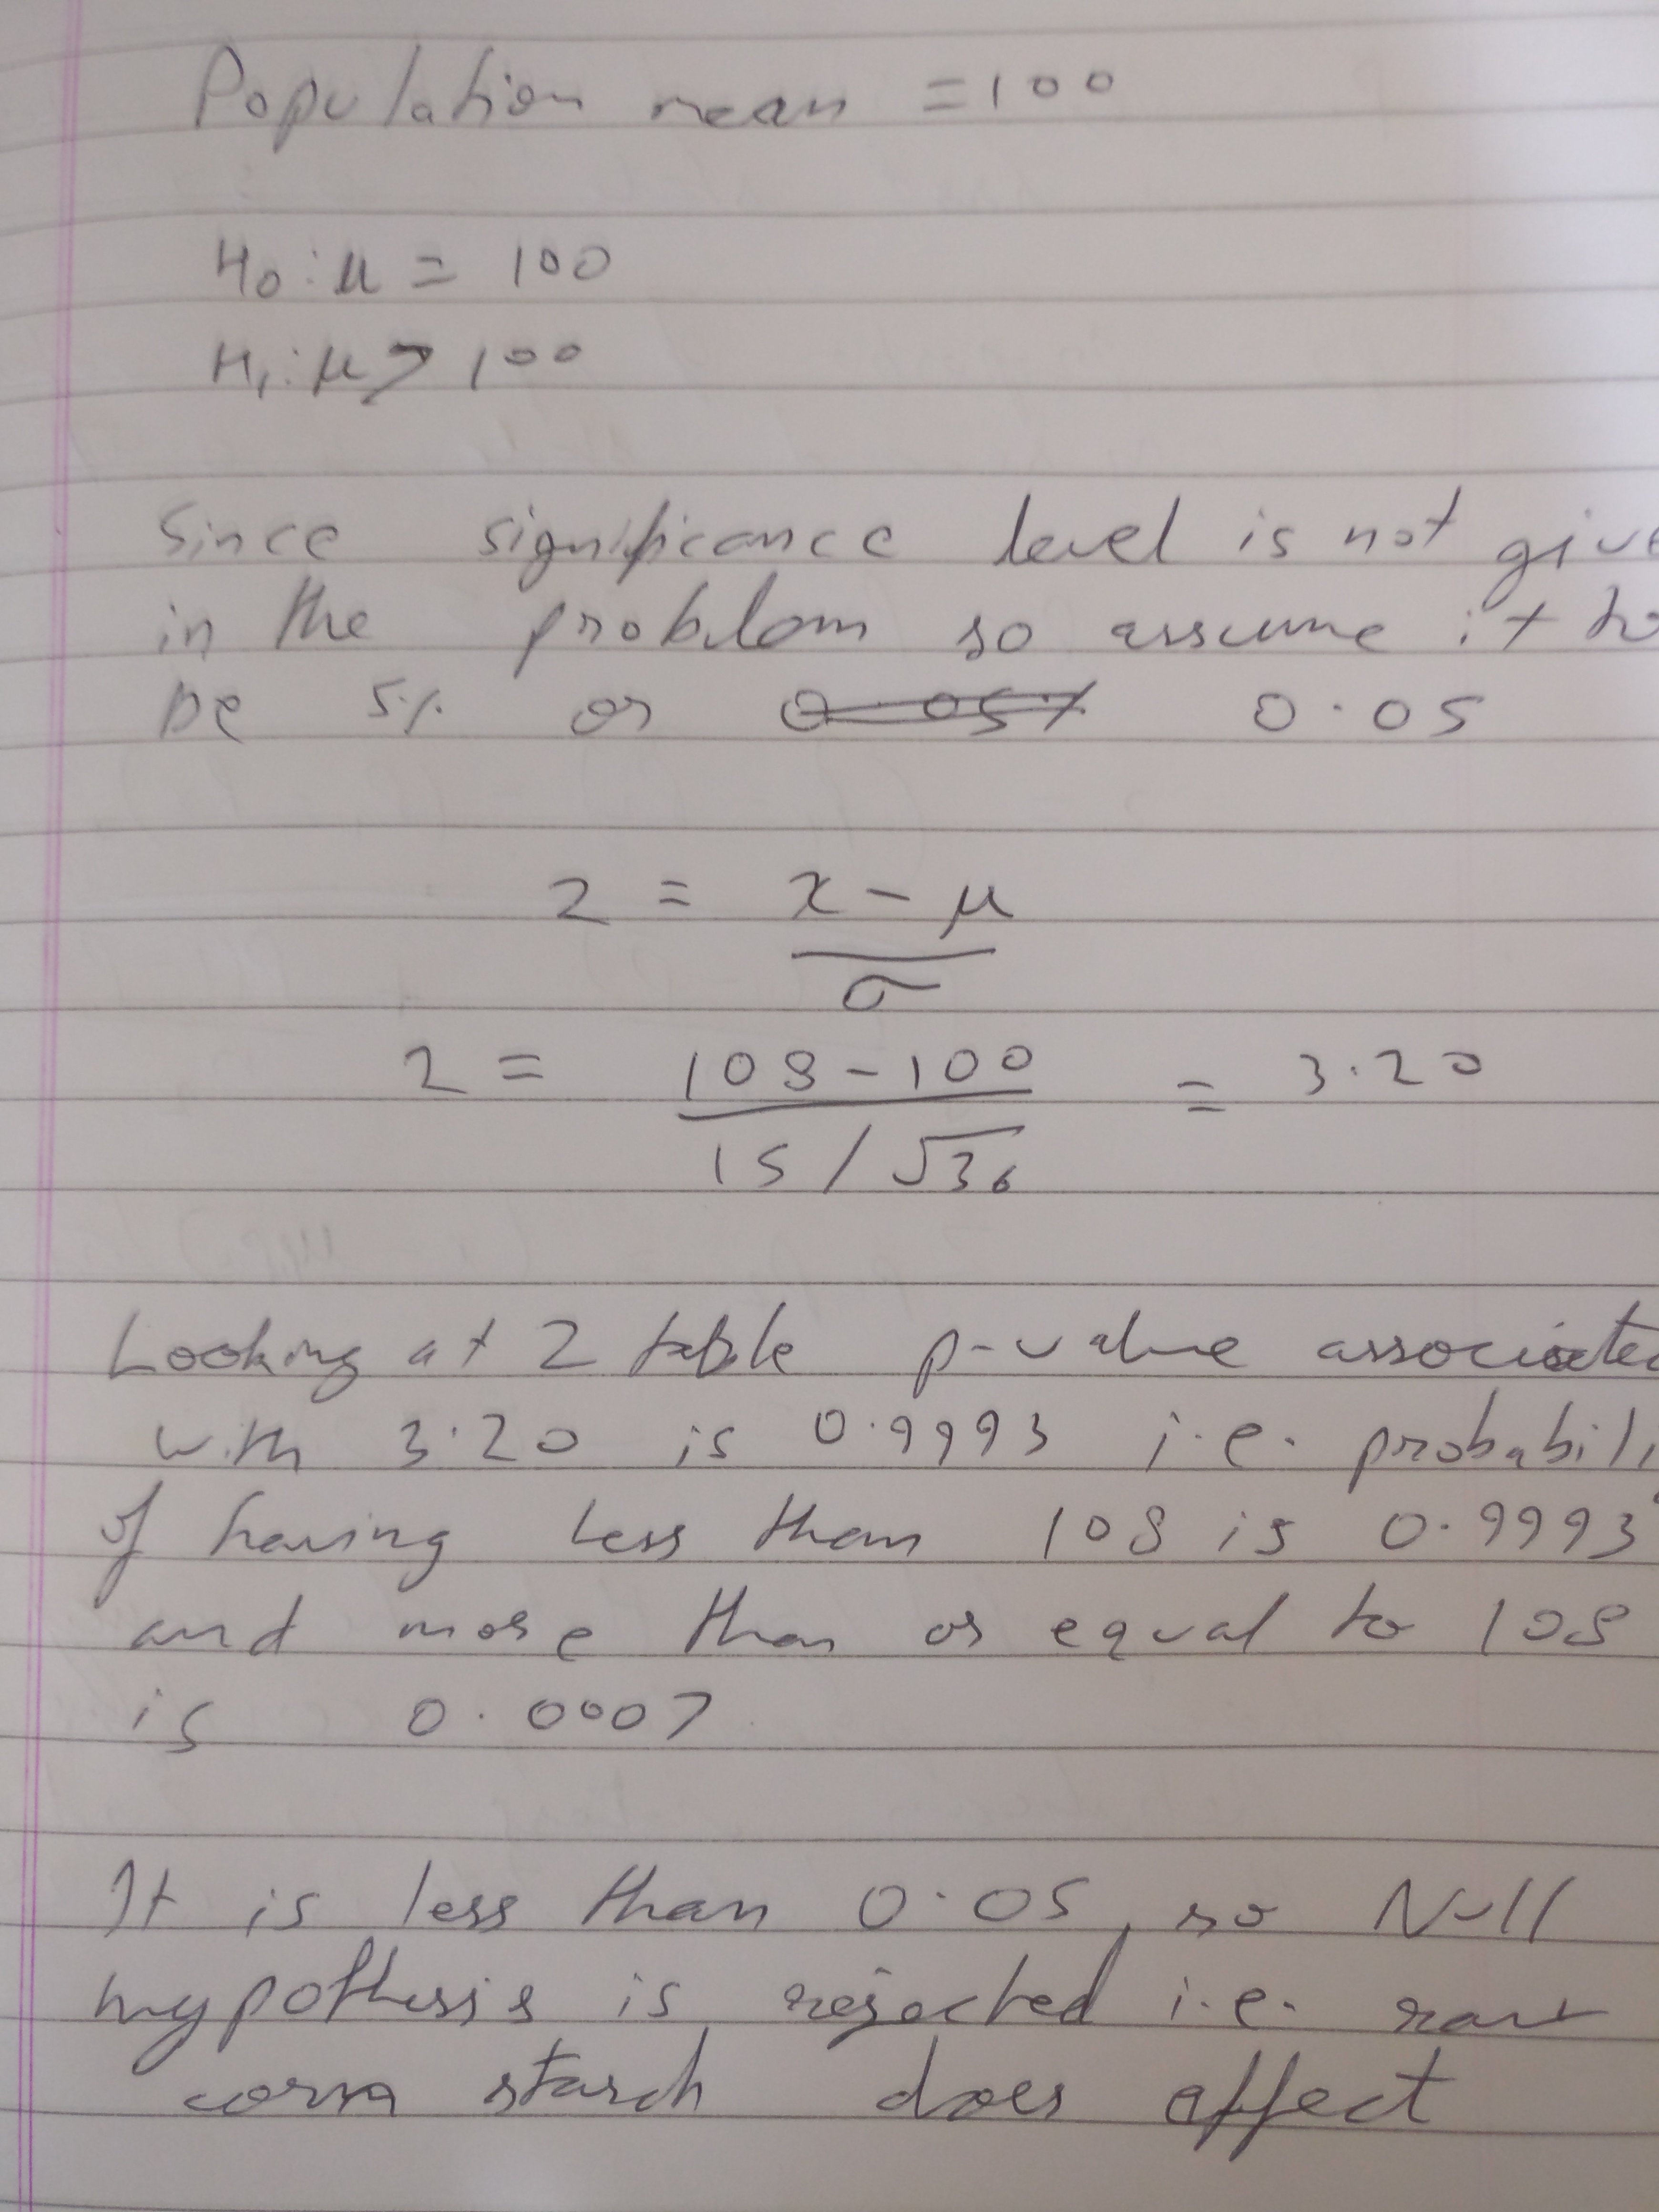 Population mean = 100
H0 : μ = 100
H1 : μ > 100
Since significance level is not give
in the problem so assume it to
be 5% or 0.05% 0.05
z = x - μ
σ
z = 108 - 100 = 3.20
15 / √36
Looking at z table p-value associated
with 3.20 is 0.9993 i.e. probabili
of having less than 108 is 0.9993
and more than or equal to 108
is 0.0007
It is less than 0.05, so Null
hypothesis is rejected i.e. raw
corn starch does affect